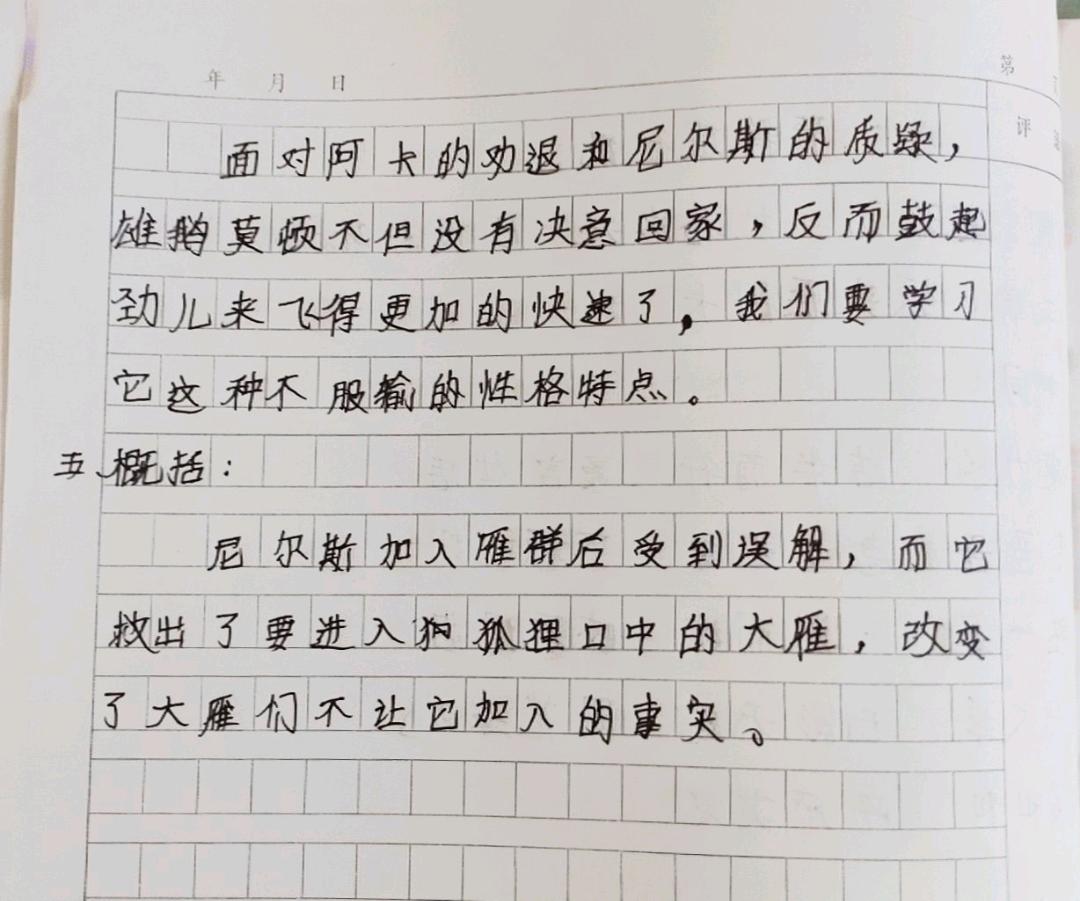 年 月 日
第
评
面对阿卡的劝退和尼尔斯的质疑，
雄鹅莫顿不但没有决意回家，反而鼓起
劲儿来飞得更加的快速了，我们要学习
它这种不服输的性格特点。
五、概括：
尼尔斯加入雁群后受到误解，而它
救出了要进入狗狐狸口中的大雁，改变
了大雁们不让它加入的事实。